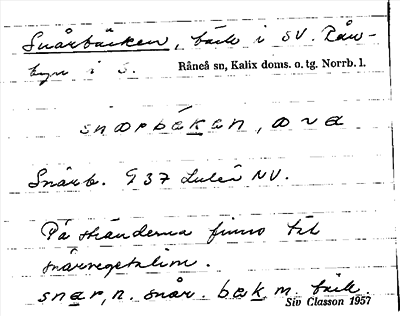 Snårbäcken, bäck i SV. Rån-
byn i S. Råneå sn, Kalix doms. o. tg. Norrb. l.
Snårb. G 37 Luleå NV.
På stränderna finns tät
snårvegetation.
n. snår. m. bäck.
Siv Classon 1957